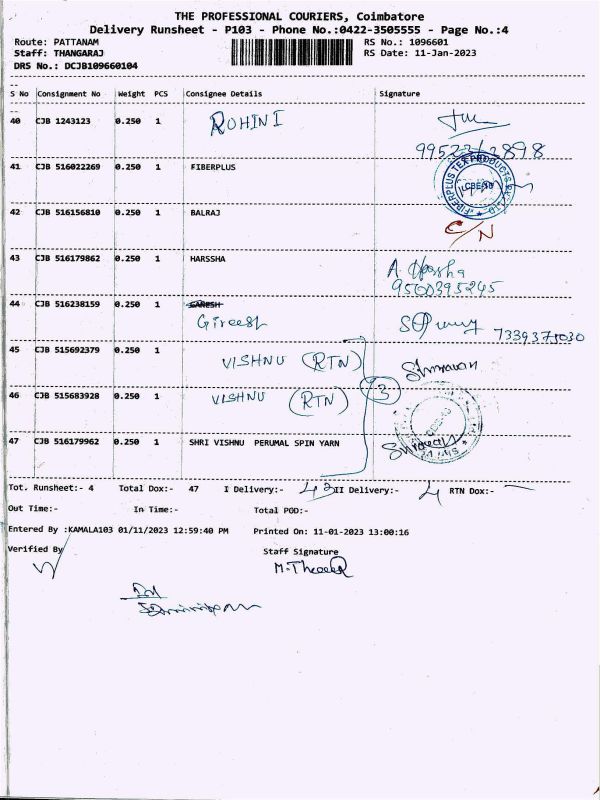 THE PROFESSIONAL COURIERS, Coimbatore
Delivery Runsheet - P103 - Phone No.:0422-3505555 - Page No.:4
Route: PATTANAM RS No.: 1096601
Staff: THANGARAJ RS Date: 11-Jan-2023
DRS No.: DCJB109660104
S No Consignment No Weight PCS Consignee Details Signature
40 CJB 1243123 0.250 1 ROHINI
41 CJB 516022269 0.250 1 FIBERPLUS
FIBERPLUS TEX PRODUCTS PVT LTD
CBE-16
42 CJB 516156810 0.250 1 BALRAJ
C/N
43 CJB 516179862 0.250 1 HARSSHA A. Harsha
9500395245
44 CJB 516238159 0.250 1 GANESH
Gireesh 7339375030
45 CJB 515692379 0.250 1 VISHNU (RTN)
46 CJB 515683928 0.250 1 VISHNU (RTN) 3
47 CJB 516179962 0.250 1 SHRI VISHNU PERUMAL SPIN YARN
Tot. Runsheet:- 4 Total Dox:- 47 I Delivery:- 43 II Delivery:- 4 RTN Dox:- —
Out Time:- In Time:- Total POD:-
Entered By :KAMALA103 01/11/2023 12:59:40 PM Printed On: 11-01-2023 13:00:16
Verified By Staff Signature